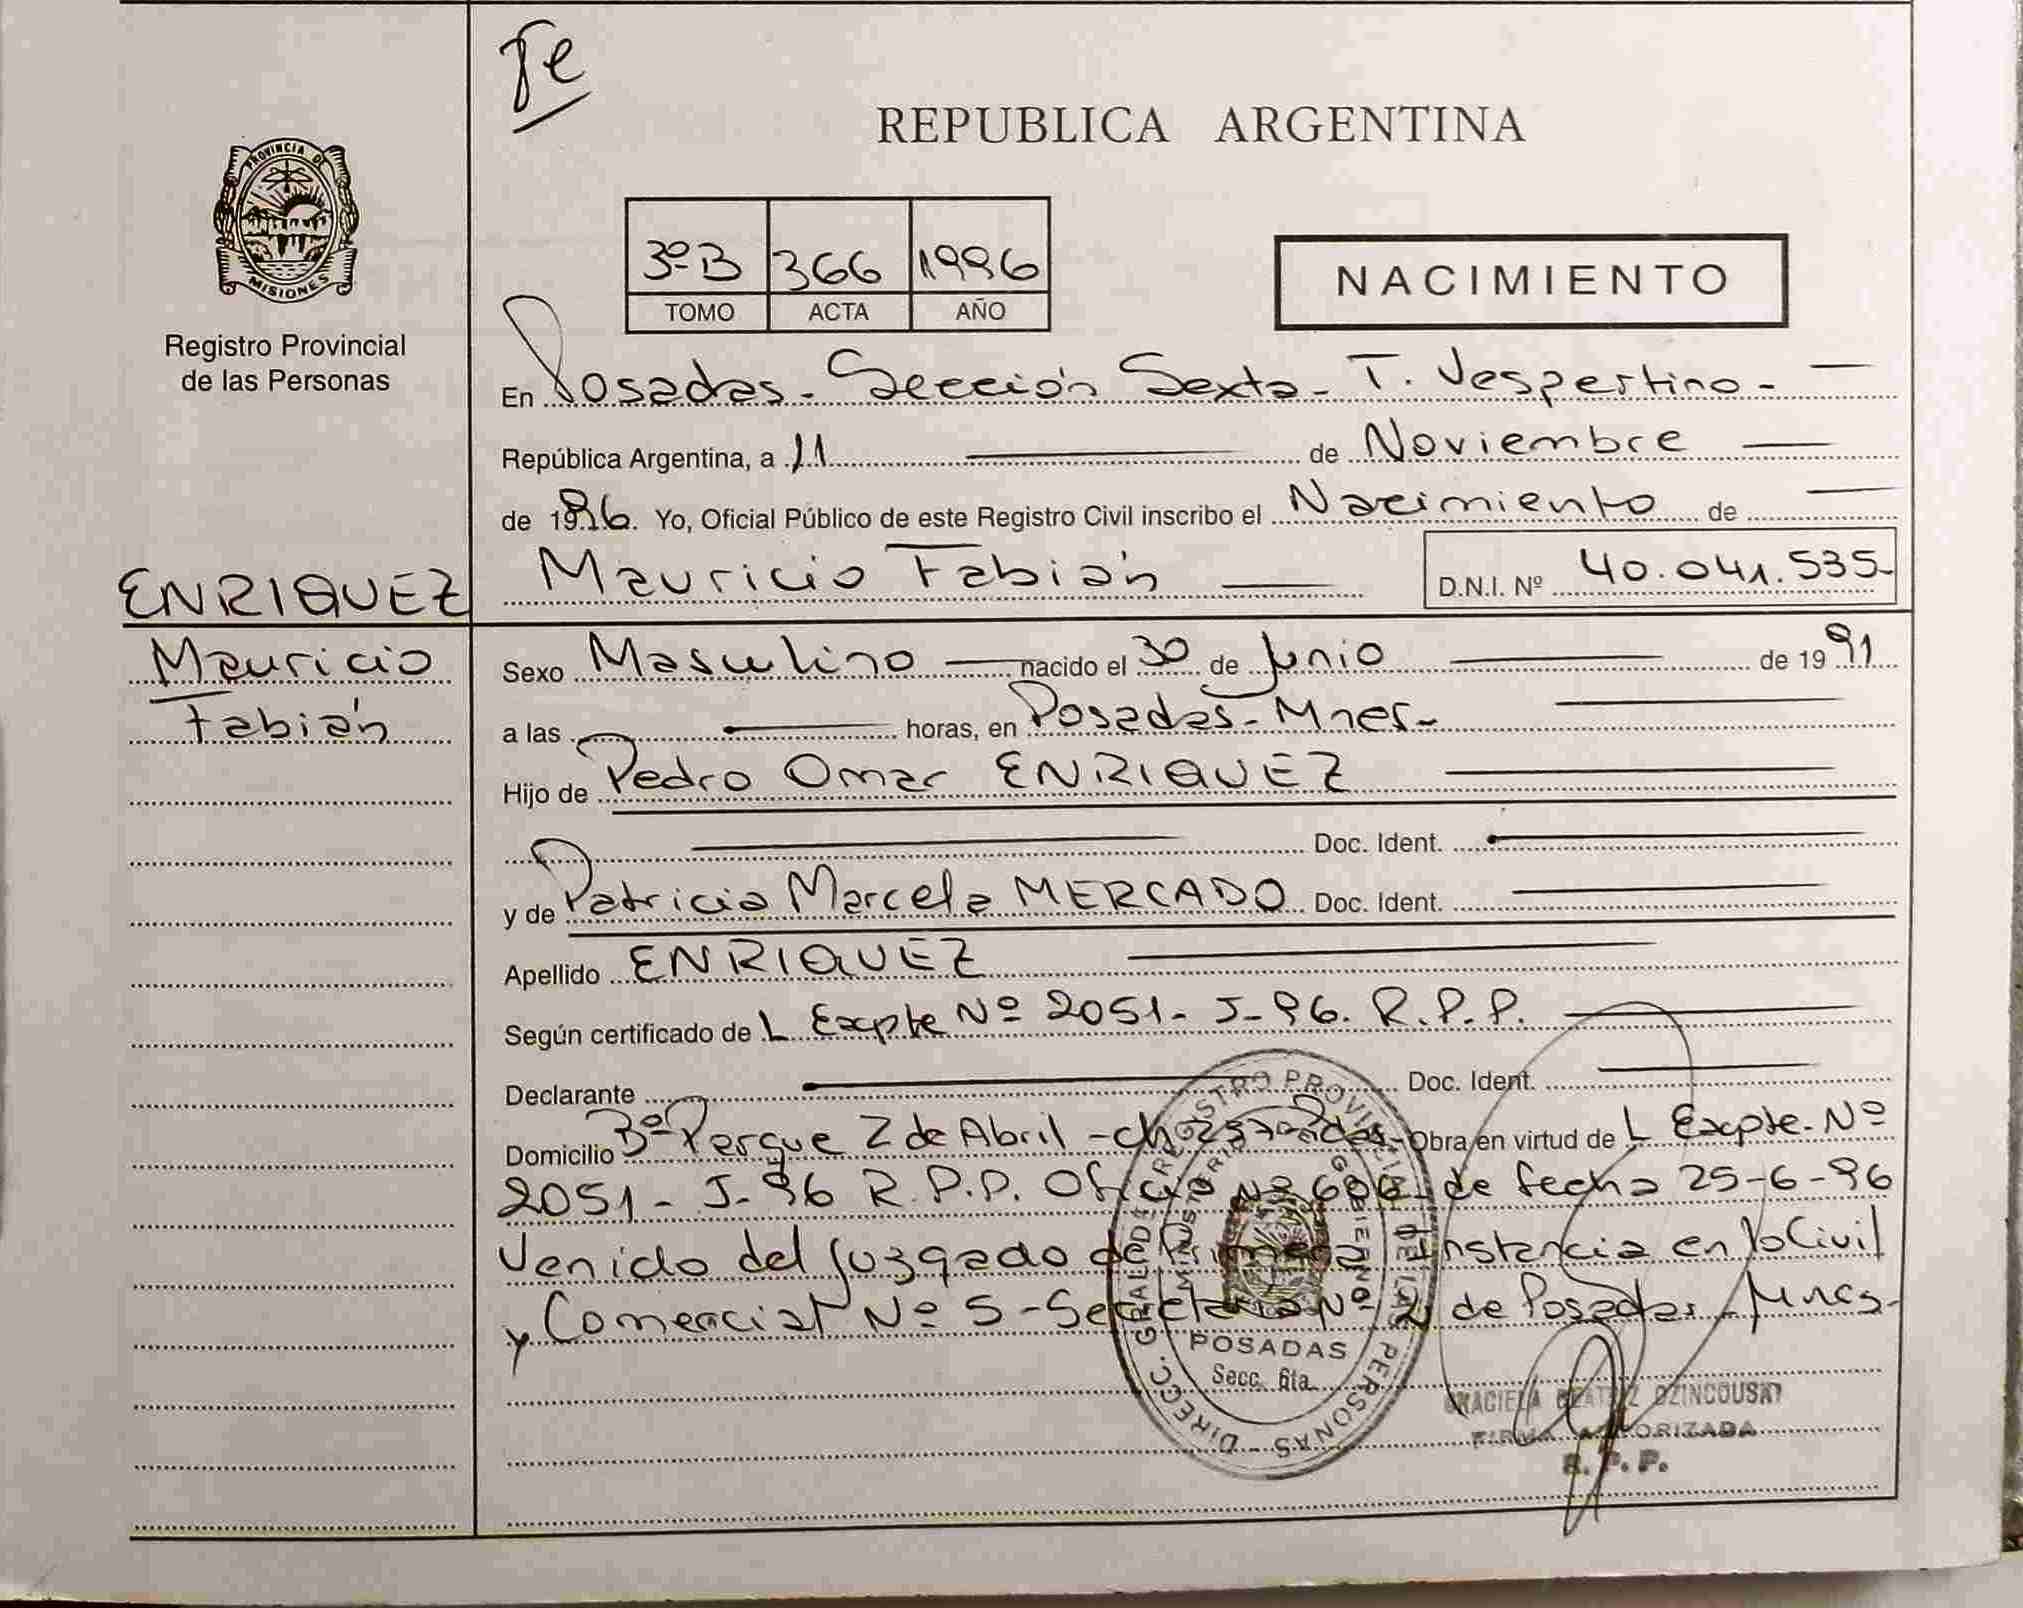 Fe
REPUBLICA ARGENTINA
PROVINCIA DE
MISIONES
Registro Provincial
de las Personas
3º B 366 1996
TOMO ACTA AÑO
NACIMIENTO
En Posadas - Sección Sexta - T. Vespertino -
República Argentina, a 11 de Noviembre
de 1996. Yo, Oficial Público de este Registro Civil inscribo el Nacimiento de
Mauricio Fabián D.N.I. Nº 40.041.535-
ENRIQUEZ
Mauricio
Fabián
Sexo Masculino nacido el 30 de Junio de 1991
a las horas, en Posadas - Mnes -
Hijo de Pedro Omar ENRIQUEZ
Doc. Ident.
y de Patricia Marcela MERCADO Doc. Ident.
Apellido ENRIQUEZ
Según certificado de L Expte Nº 2051 - J - 96. R.P.P.
Declarante Doc. Ident.
Domicilio Bº Parque 2 de Abril - Obra en virtud de L Expte. Nº
2051 - J - 96 R.P.P. Oficio Nº de fecha 25-6-96
Venido del Juzgado de Primera Instancia en lo Civil
y Comercial Nº 5 - Secretaria Nº 2 de Posadas - Mnes -
DIRECC. GRAL. DE REGISTRO PROVINCIAL DE LAS PERSONAS
MINISTERIO GOBIERNO
POSADAS
Secc. 6ta.
GRACIELA BEATRIZ DZINCOUSKY
FIRMA AUTORIZADA
R. P. P.